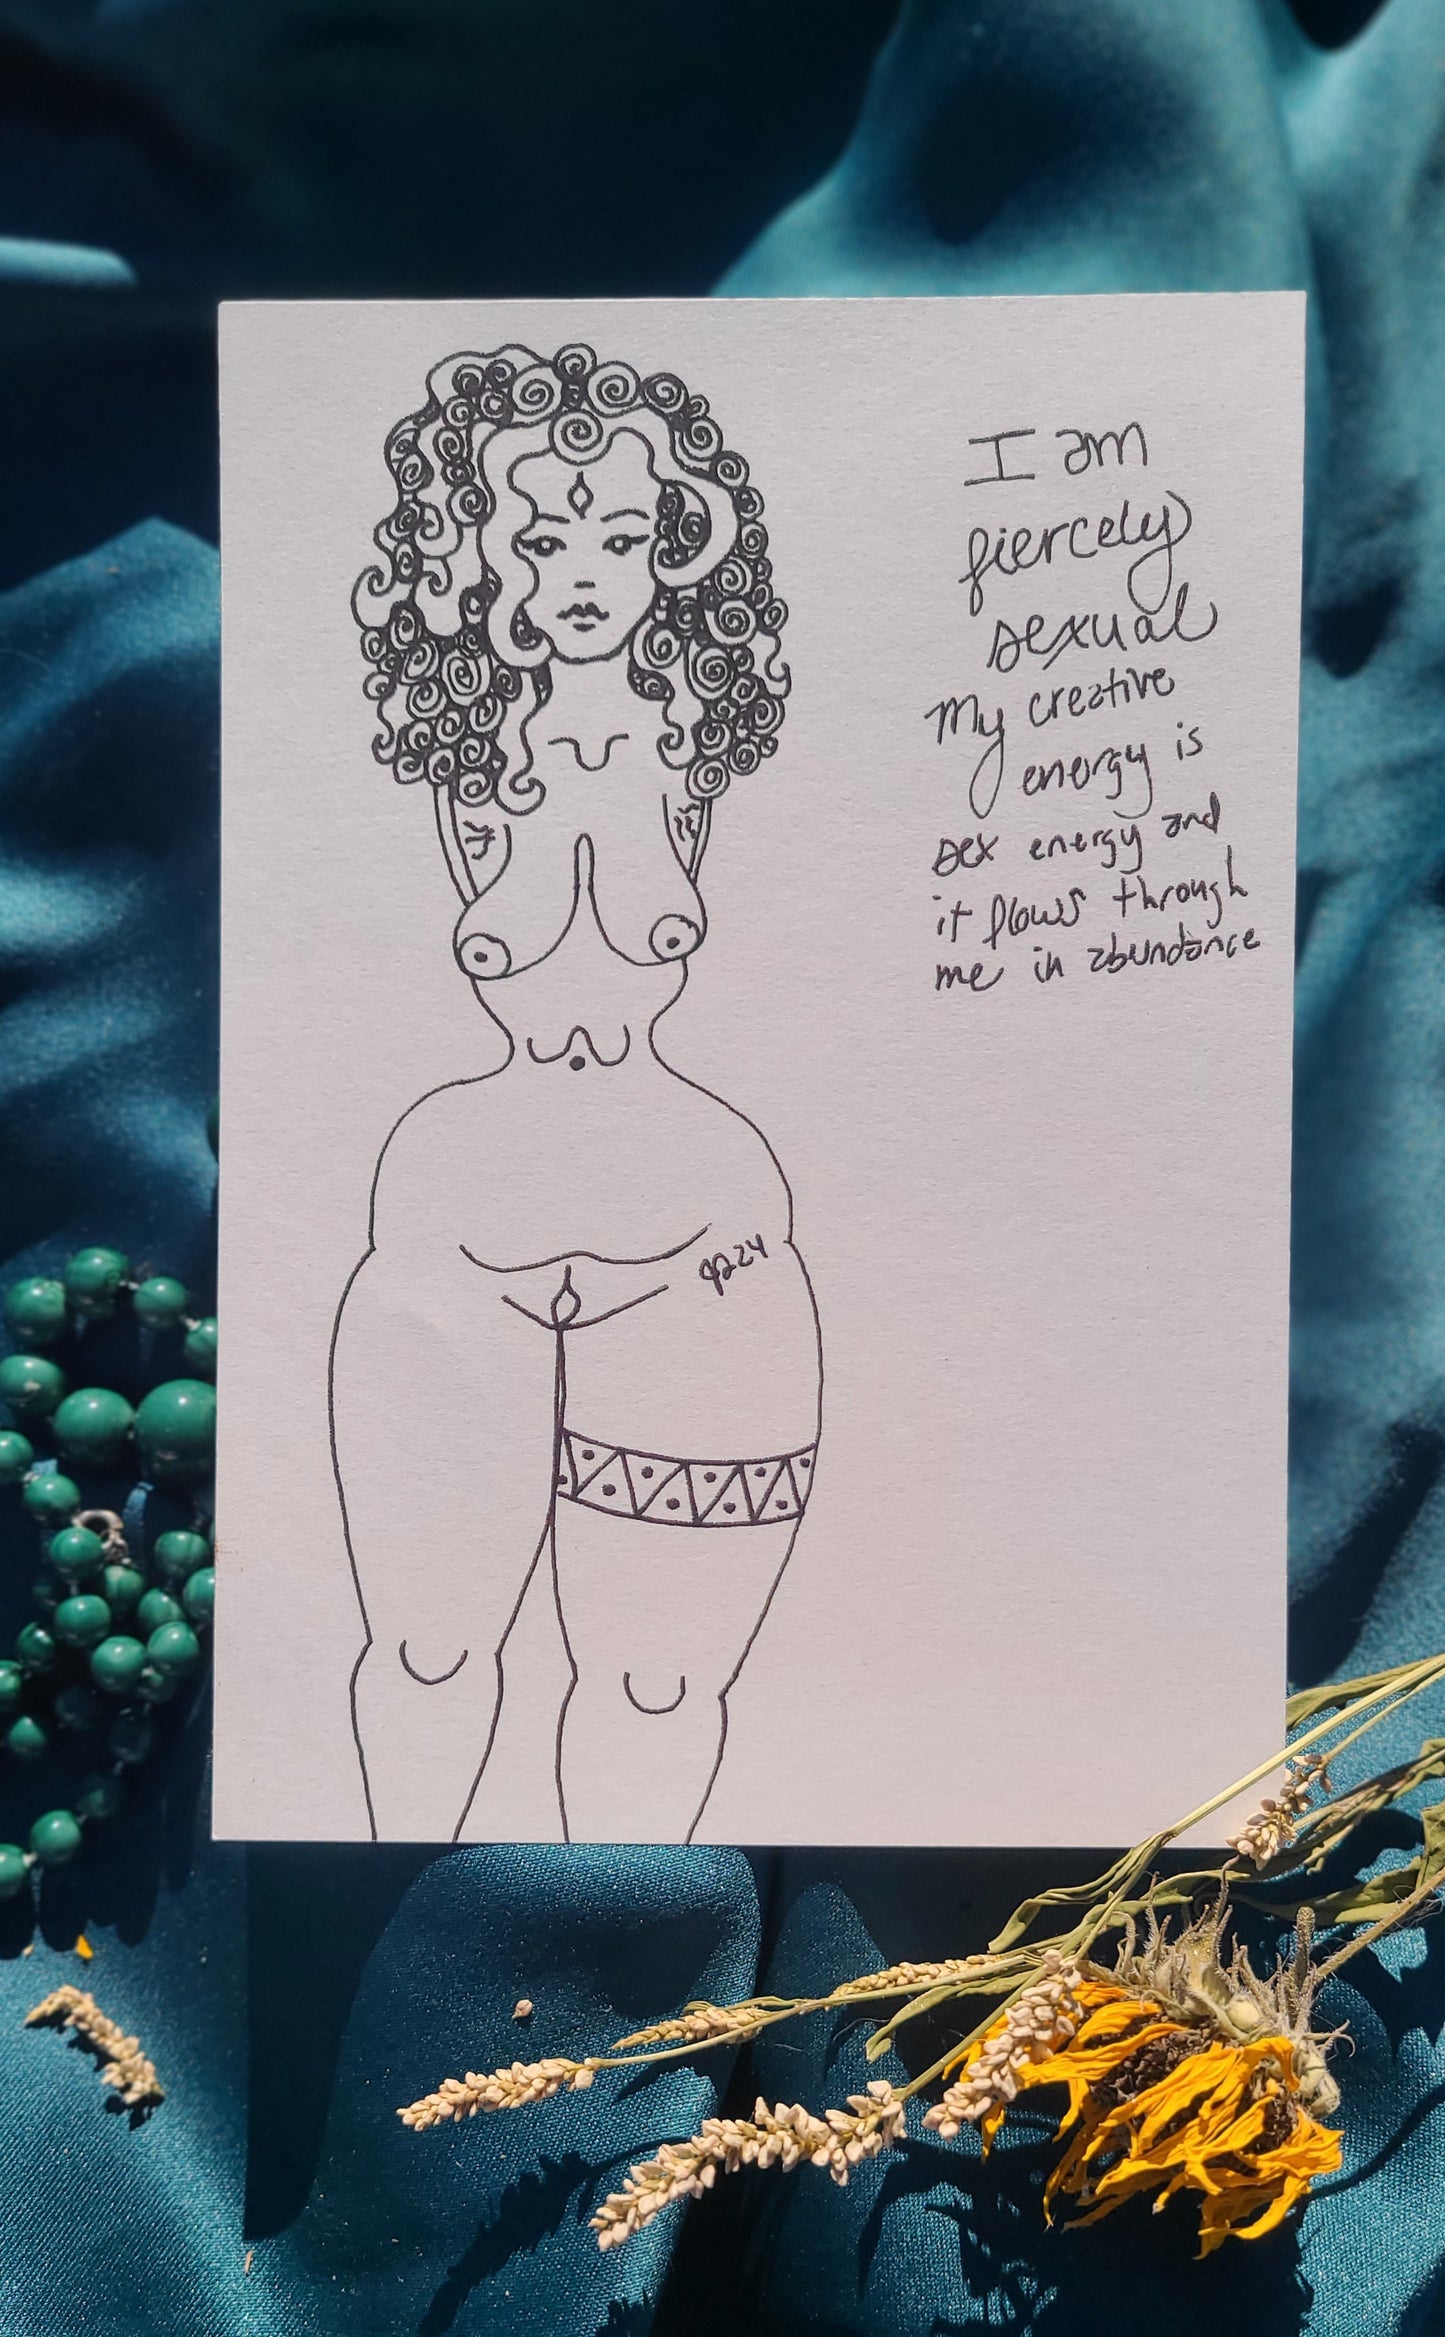 I am
fiercely
sexual
My creative
energy is
sex energy and
it flows through
me in abundance